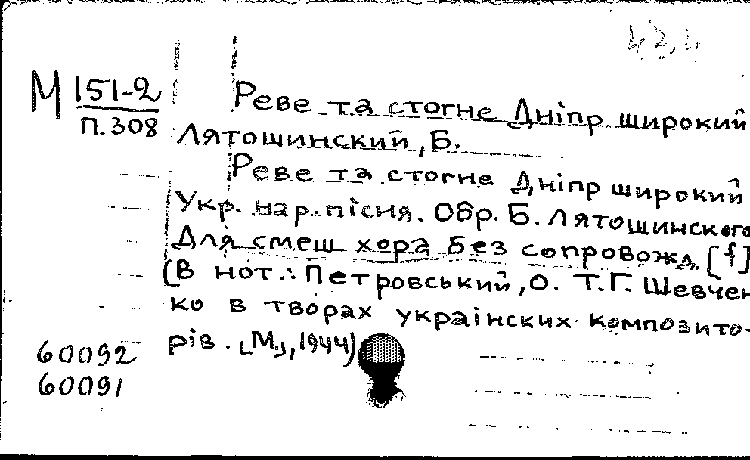 М 151-2
п. 308
Реве та стогне Дніпр широкий
Лятошинский, Б.
Реве та стогне Дніпр широкий
Укр. нар. пісня. Обр. Б. Лятошинского
Для смеш хора без сопровожд. [f]
(В нот.: Петровський, О. Т.Г. Шевчен-
ко в творах українских композито-
рів. [М], 1944)
60092
60091